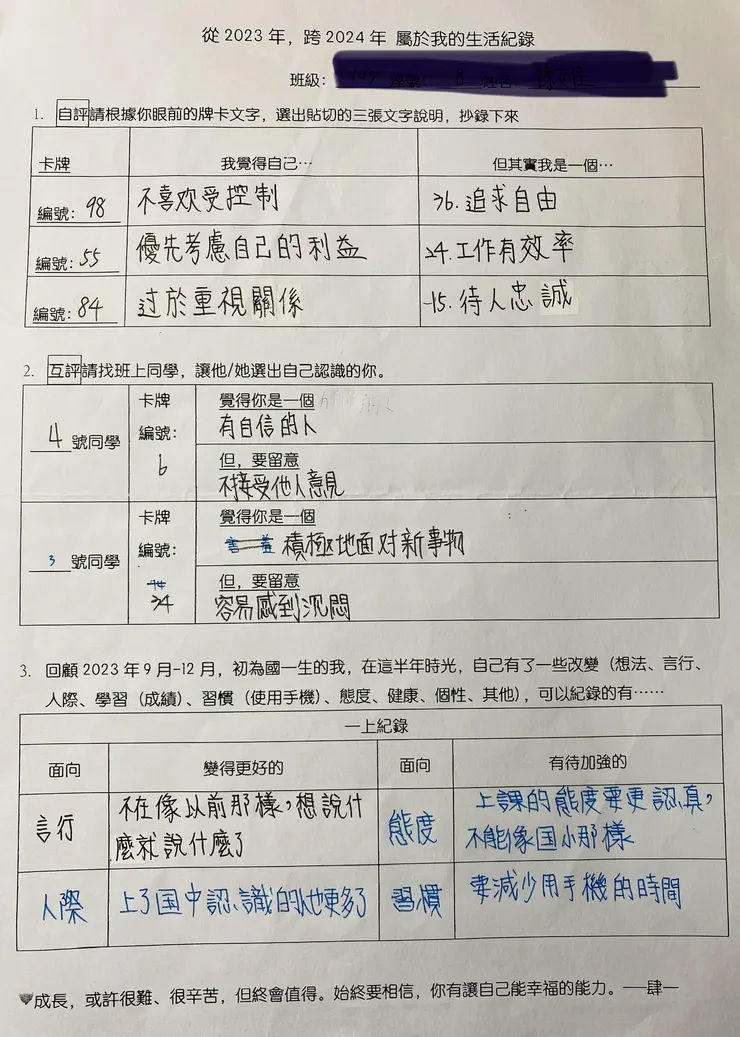 從2023年，跨2024年 屬於我的生活紀錄
班級：
1. 自評請根據你眼前的牌卡文字，選出貼切的三張文字說明，抄錄下來
卡牌 我覺得自己… 但其實我是一個…
編號：98 不喜欢受控制 36.追求自由
編號：55 優先考慮自己的利益 24.工作有效率
編號：84 过於重視關係 15.待人忠誠
2. 互評請找班上同學，讓他/她選出自己認識的你。
4號同學 卡牌編號：6
覺得你是一個
有自信的人
但，要留意
不接受他人意見
3號同學 卡牌編號：34
覺得你是一個
積極地面对新事物
但，要留意
容易感到沉悶
3. 回顧2023年9月-12月，初為國一生的我，在這半年時光，自己有了一些改變（想法、言行、
人際、學習（成績）、習慣（使用手機）、態度、健康、個性、其他），可以紀錄的有……
一上紀錄
面向 變得更好的 面向 有待加強的
言行 不在像以前那樣，想說什
麼就說什麼了
態度 上課的態度要更認真，
不能像国小那樣
人際 上了国中認識的人也更多了
習慣 要減少用手機的時間
成長，或許很難、很辛苦，但終會值得。始終要相信，你有讓自己能幸福的能力。——肆一